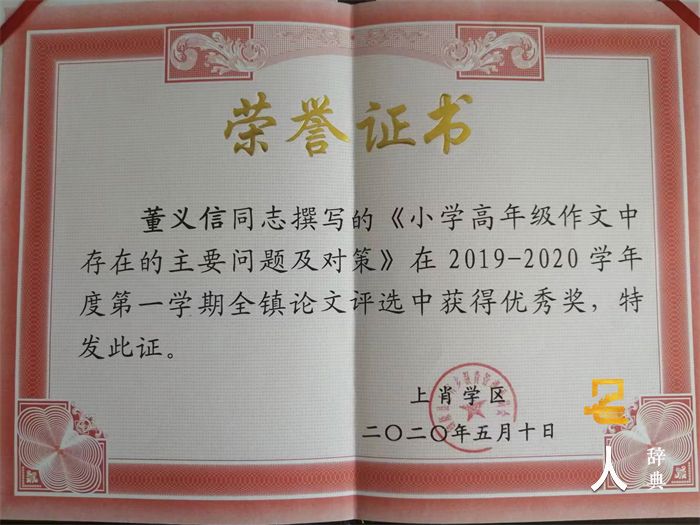 荣誉证书
董义信同志撰写的《小学高年级作文中
存在的主要问题及对策》在2019-2020学年
度第一学期全镇论文评选中获得优秀奖，特
发此证。
上肖学区
二〇二〇年五月十日
名人
辞典